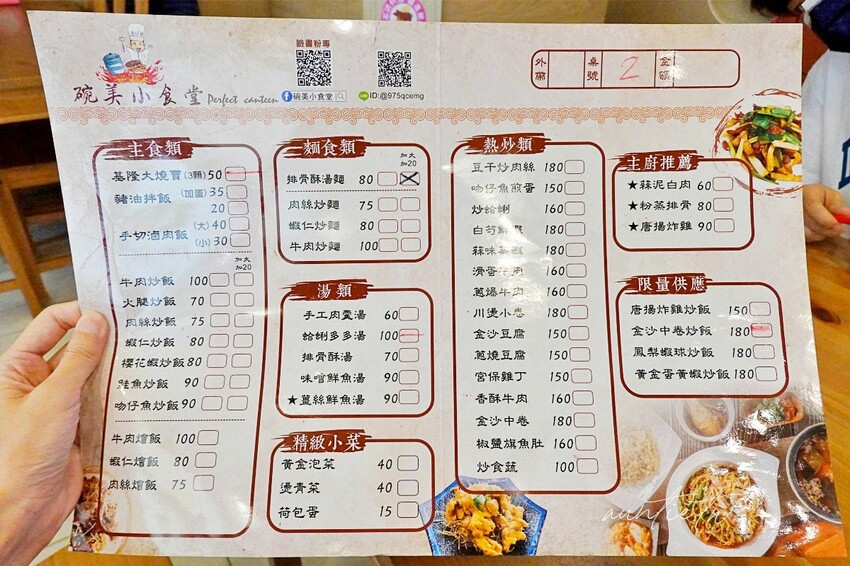 臉書粉專
碗美小食堂 Perfect canteen
碗美小食堂
ID:@975qcemg
外帶 桌號 2 金額
主食類
基隆大燒賣(3顆) 50
豬油拌飯 (加蛋) 35
20
手切滷肉飯 (大) 40
(小) 30
加大
加20
牛肉炒飯 100
火腿炒飯 70
肉絲炒飯 75
蝦仁炒飯 80
櫻花蝦炒飯 80
鮭魚炒飯 90
吻仔魚炒飯 90
牛肉燴飯 100
蝦仁燴飯 80
肉絲燴飯 75
麵食類
加大
加20
排骨酥湯麵 80
肉絲炒麵 75
蝦仁炒麵 80
牛肉炒麵 100
湯類
手工肉羹湯 60
蛤蜊多多湯 100
排骨酥湯 70
味噌鮮魚湯 90
★薑絲鮮魚湯 90
精緻小菜
黃金泡菜 40
燙青菜 40
荷包蛋 15
熱炒類
豆干炒肉絲 180
吻仔魚煎蛋 150
炒蛤蜊 160
白芍 180
蒜味 180
滑蛋牛肉 160
蔥爆牛肉 160
川燙小卷 180
金沙豆腐 150
蔥燒豆腐 150
宮保雞丁 150
香酥牛肉 160
金沙中卷 180
椒鹽旗魚肚 160
炒食蔬 100
主廚推薦
★蒜泥白肉 60
★粉蒸排骨 80
★唐揚炸雞 90
限量供應
唐揚炸雞炒飯 150
金沙中卷炒飯 180
鳳梨蝦球炒飯 180
黃金蛋黃蝦炒飯 180